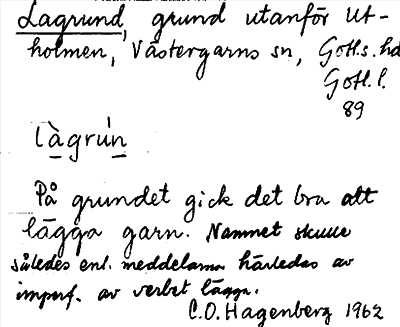 Lagrund, grund utanför Ut-
holmen, Västergarns sn, Gotls. hd
Gotl. l.
89
làgrún
På grundet gick det bra att
lägga garn. Namnet skulle
således enl. meddelarna härledas av
imperf. av verbet lägga.
C.O. Hagenberg 1962